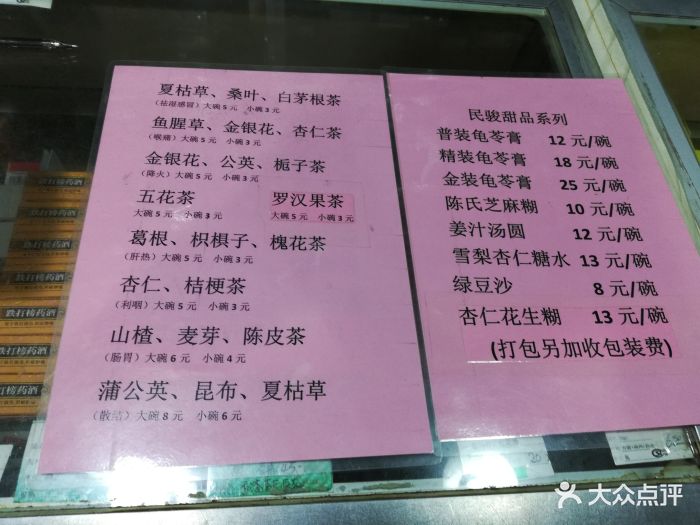 夏枯草、桑叶、白茅根茶
（祛湿感冒）大碗 5 元 小碗 3 元
鱼腥草、金银花、杏仁茶
（喉痛）大碗 5 元 小碗 3 元
金银花、公英、栀子茶
（降火）大碗 5 元 小碗 3 元
五花茶 罗汉果茶
大碗 5 元 小碗 3 元 大碗 5 元 小碗 3 元
葛根、枳椇子、槐花茶
（肝热）大碗 5 元 小碗 3 元
杏仁、桔梗茶
（利咽）大碗 5 元 小碗 3 元
山楂、麦芽、陈皮茶
（肠胃）大碗 6 元 小碗 4 元
蒲公英、昆布、夏枯草
（散结）大碗 8 元 小碗 6 元
民骏甜品系列
普装龟苓膏 12 元/碗
精装龟苓膏 18 元/碗
金装龟苓膏 25 元/碗
陈氏芝麻糊 10 元/碗
姜汁汤圆 12 元/碗
雪梨杏仁糖水 13 元/碗
绿豆沙 8 元/碗
杏仁花生糊 13 元/碗
(打包另加收包装费)
跌打榜药酒
跌打榜药酒
跌打榜药酒
跌打榜药酒
大众点评